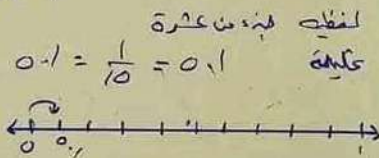 لفظيه جزء من عشرة
0.1 = 1/10 = 0,1
0 0.1 1